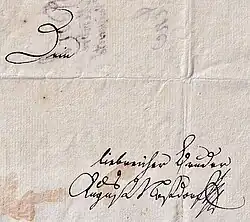 Dein
liebreicher Bruder
August